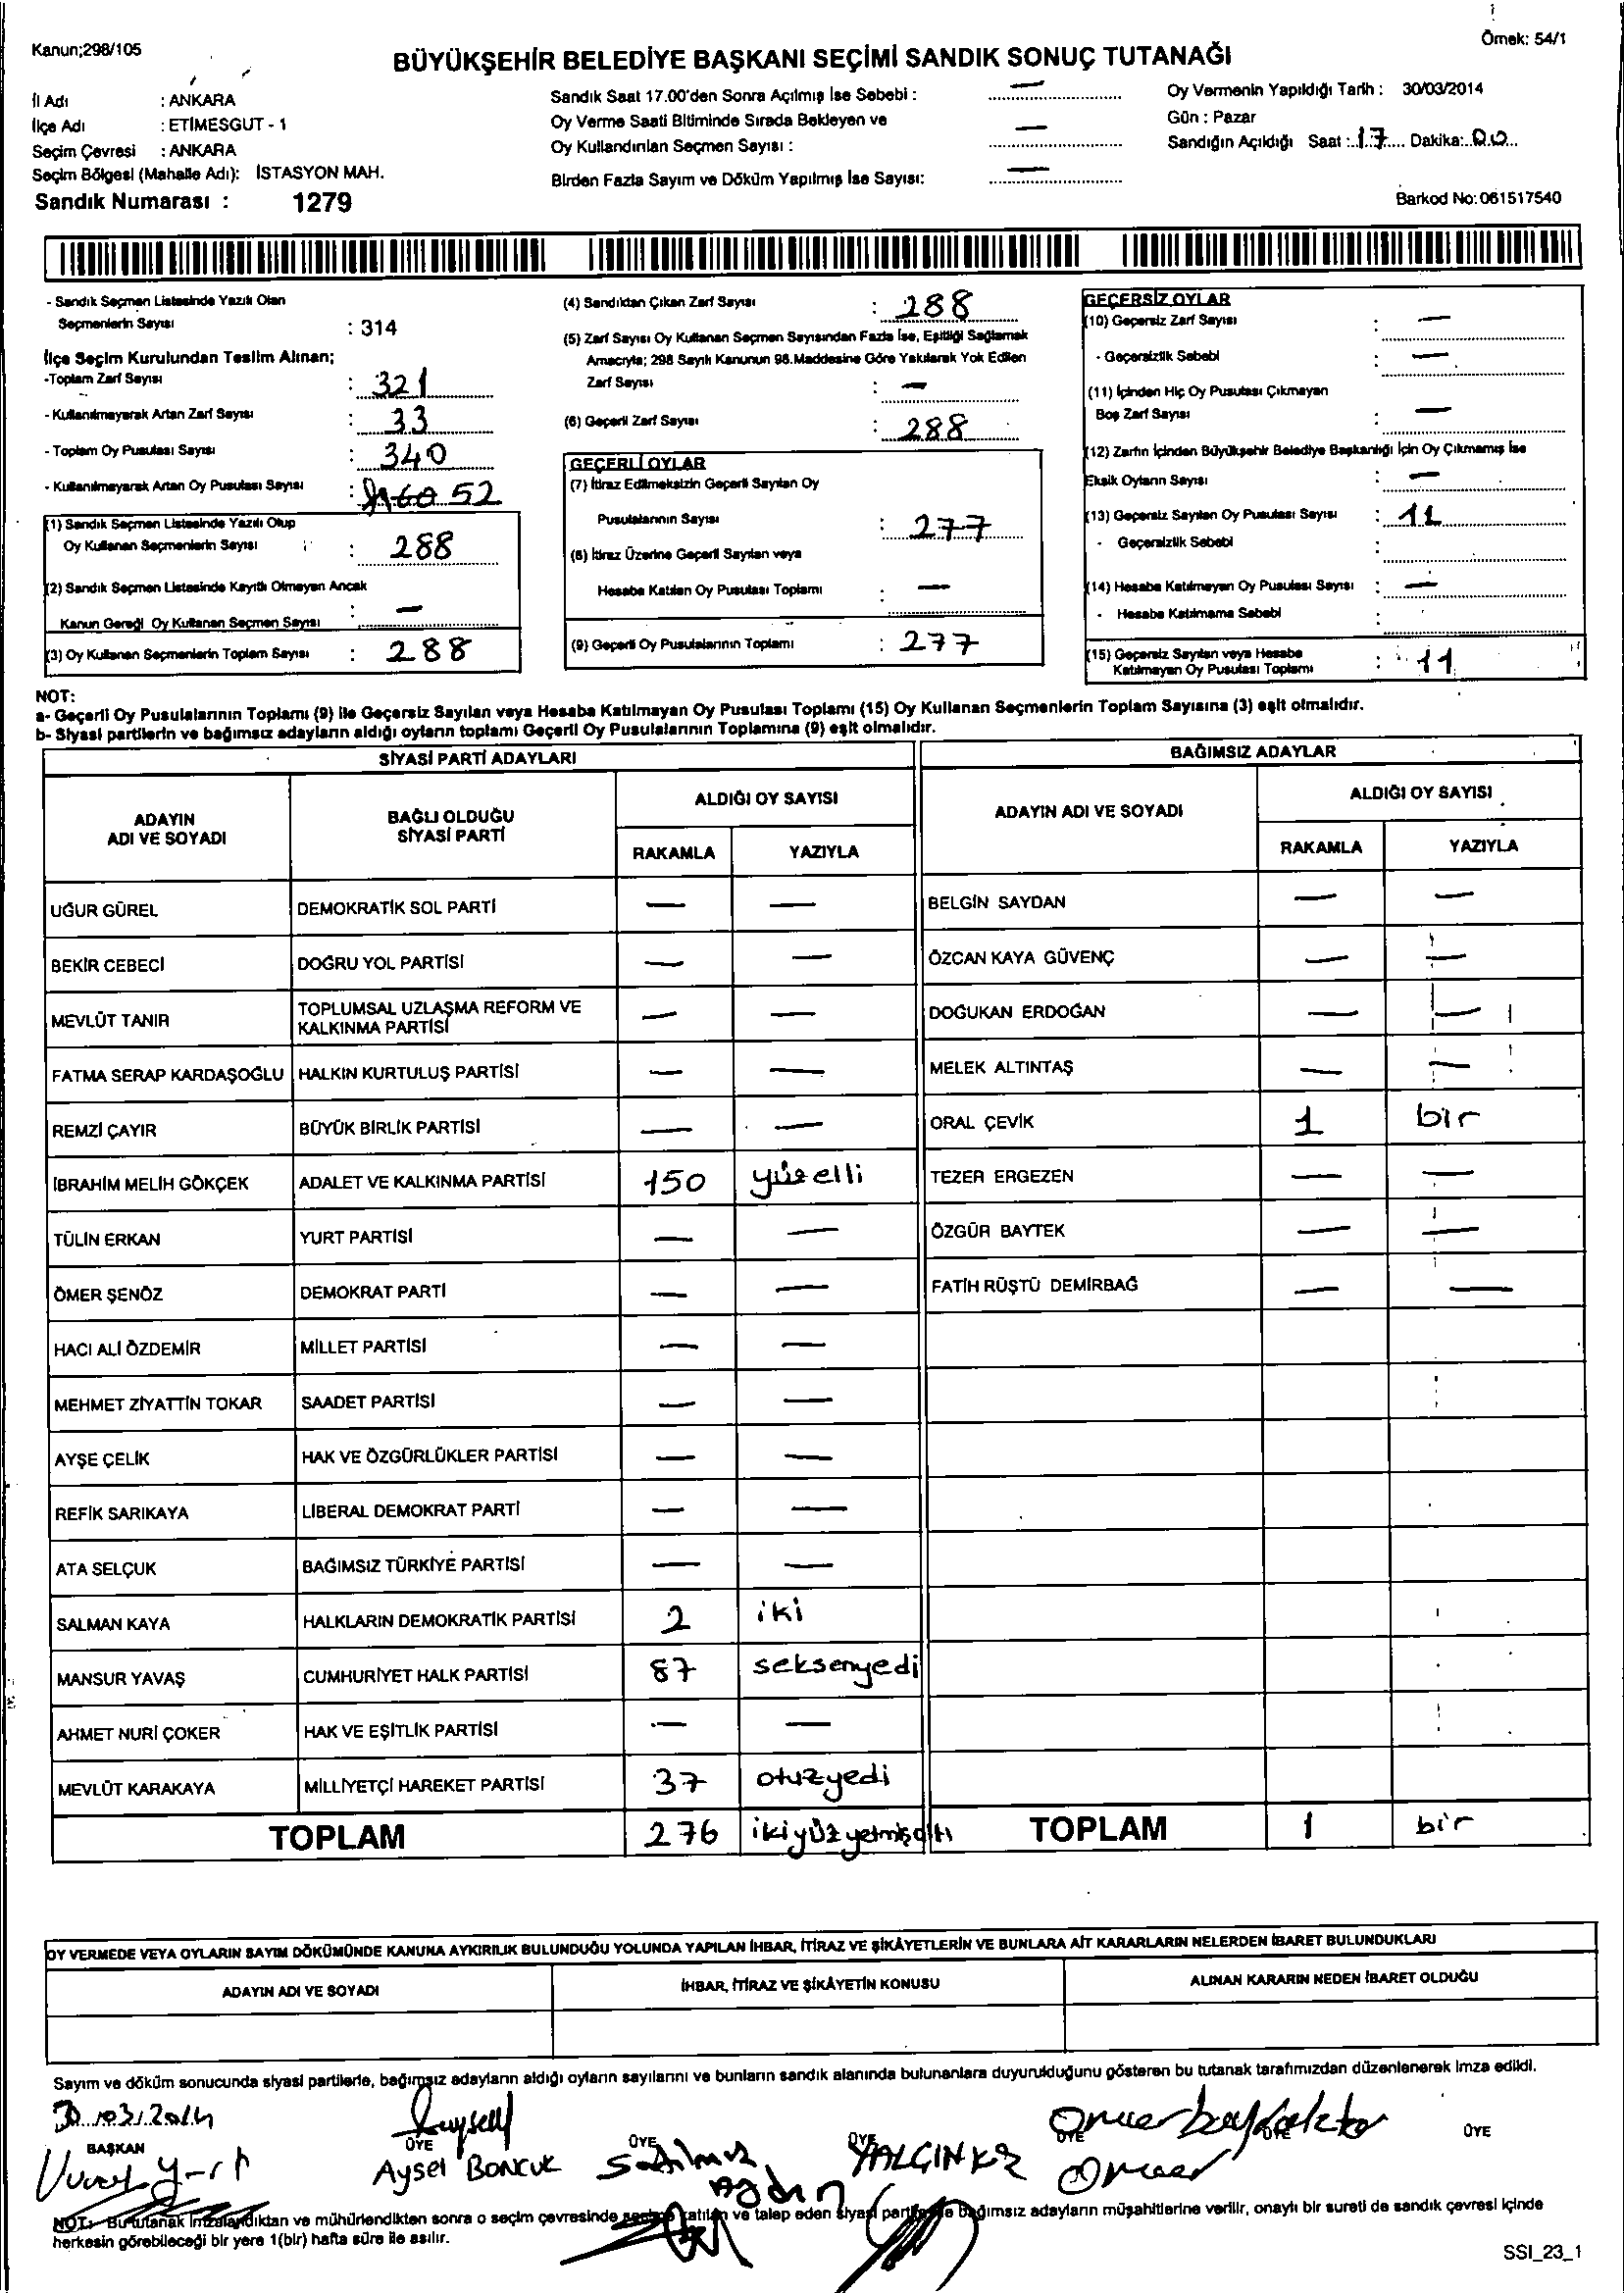 Kanun;298/105
Örnek: 54/1
BÜYÜKŞEHİR BELEDİYE BAŞKANI SEÇİMİ SANDIK SONUÇ TUTANAĞI
İl Adı : ANKARA
İlçe Adı : ETİMESGUT - 1
Seçim Çevresi : ANKARA
Seçim Bölgesi (Mahalle Adı): İSTASYON MAH.
Sandık Numarası : 1279
Sandık Saat 17.00'den Sonra Açılmış İse Sebebi : —
Oy Verme Saati Bitiminde Sırada Bekleyen ve
Oy Kullandırılan Seçmen Sayısı : —
Birden Fazla Sayım ve Döküm Yapılmış İse Sayısı: —
Oy Vermenin Yapıldığı Tarih : 30/03/2014
Gün : Pazar
Sandığın Açıldığı Saat : 17 Dakika: 00
Barkod No:061517540
- Sandık Seçmen Listesinde Yazılı Olan
Seçmenlerin Sayısı : 314
İlçe Seçim Kurulundan Teslim Alınan;
-Toplam Zarf Sayısı : 321
- Kullanılmayarak Artan Zarf Sayısı : 33
- Toplam Oy Pusulası Sayısı : 340
- Kullanılmayarak Artan Oy Pusulası Sayısı : 52
(1) Sandık Seçmen Listesinde Yazılı Olup
Oy Kullanan Seçmenlerin Sayısı : 288
(2) Sandık Seçmen Listesinde Kayıtlı Olmayan Ancak
Kanun Gereği Oy Kullanan Seçmen Sayısı : —
(3) Oy Kullanan Seçmenlerin Toplam Sayısı : 288
(4) Sandıktan Çıkan Zarf Sayısı : 288
(5) Zarf Sayısı Oy Kullanan Seçmen Sayısından Fazla İse, Eşitliği Sağlamak
Amacıyla; 298 Sayılı Kanunun 98.Maddesine Göre Yakılarak Yok Edilen
Zarf Sayısı : —
(6) Geçerli Zarf Sayısı : 288
GEÇERLİ OYLAR
(7) İtiraz Edilmeksizin Geçerli Sayılan Oy
Pusulalarının Sayısı : 277
(8) İtiraz Üzerine Geçerli Sayılan veya
Hesaba Katılan Oy Pusulası Toplamı : —
(9) Geçerli Oy Pusulalarının Toplamı : 277
GEÇERSİZ OYLAR
(10) Geçersiz Zarf Sayısı : —
- Geçersizlik Sebebi : —
(11) İçinden Hiç Oy Pusulası Çıkmayan
Boş Zarf Sayısı : —
(12) Zarfın İçinden Büyükşehir Belediye Başkanlığı İçin Oy Çıkmamış İse
Eksik Oyların Sayısı : —
(13) Geçersiz Sayılan Oy Pusulası Sayısı : 11
- Geçersizlik Sebebi :
(14) Hesaba Katılmayan Oy Pusulası Sayısı : —
- Hesaba Katılmama Sebebi :
(15) Geçersiz Sayılan veya Hesaba
Katılmayan Oy Pusulası Toplamı : 11
NOT:
a- Geçerli Oy Pusulalarının Toplamı (9) ile Geçersiz Sayılan veya Hesaba Katılmayan Oy Pusulası Toplamı (15) Oy Kullanan Seçmenlerin Toplam Sayısına (3) eşit olmalıdır.
b- Siyasi partilerin ve bağımsız adayların aldığı oyların toplamı Geçerli Oy Pusulalarının Toplamına (9) eşit olmalıdır.
SİYASİ PARTİ ADAYLARI
ADAYIN ADI VE SOYADI BAĞLI OLDUĞU SİYASİ PARTİ ALDIĞI OY SAYISI
RAKAMLA YAZIYLA
UĞUR GÜREL DEMOKRATİK SOL PARTİ — —
BEKİR CEBECİ DOĞRU YOL PARTİSİ — —
MEVLÜT TANIR TOPLUMSAL UZLAŞMA REFORM VE KALKINMA PARTİSİ — —
FATMA SERAP KARDAŞOĞLU HALKIN KURTULUŞ PARTİSİ — —
REMZİ ÇAYIR BÜYÜK BİRLİK PARTİSİ — —
İBRAHİM MELİH GÖKÇEK ADALET VE KALKINMA PARTİSİ 150 yüzelli
TÜLİN ERKAN YURT PARTİSİ — —
ÖMER ŞENÖZ DEMOKRAT PARTİ — —
HACI ALİ ÖZDEMİR MİLLET PARTİSİ — —
MEHMET ZİYATTİN TOKAR SAADET PARTİSİ — —
AYŞE ÇELİK HAK VE ÖZGÜRLÜKLER PARTİSİ — —
REFİK SARIKAYA LİBERAL DEMOKRAT PARTİ — —
ATA SELÇUK BAĞIMSIZ TÜRKİYE PARTİSİ — —
SALMAN KAYA HALKLARIN DEMOKRATİK PARTİSİ 2 iki
MANSUR YAVAŞ CUMHURİYET HALK PARTİSİ 87 seksenyedi
AHMET NURİ ÇOKER HAK VE EŞİTLİK PARTİSİ — —
MEVLÜT KARAKAYA MİLLİYETÇİ HAREKET PARTİSİ 37 otuzyedi
TOPLAM 276 ikiyüzyetmişaltı
BAĞIMSIZ ADAYLAR
ADAYIN ADI VE SOYADI ALDIĞI OY SAYISI
RAKAMLA YAZIYLA
BELGİN SAYDAN — —
ÖZCAN KAYA GÜVENÇ — —
DOĞUKAN ERDOĞAN — —
MELEK ALTINTAŞ — —
ORAL ÇEVİK 1 bir
TEZER ERGEZEN — —
ÖZGÜR BAYTEK — —
FATİH RÜŞTÜ DEMİRBAĞ — —
TOPLAM 1 bir
OY VERMEDE VEYA OYLARIN SAYIM DÖKÜMÜNDE KANUNA AYKIRILIK BULUNDUĞU YOLUNDA YAPILAN İHBAR, İTİRAZ VE ŞİKÂYETLERİN VE BUNLARA AİT KARARLARIN NELERDEN İBARET BULUNDUKLARI
ADAYIN ADI VE SOYADI İHBAR, İTİRAZ VE ŞİKÂYETİN KONUSU ALINAN KARARIN NEDEN İBARET OLDUĞU
Sayım ve döküm sonucunda siyasi partilerle, bağımsız adayların aldığı oyların sayılarını ve bunların sandık alanında bulunanlara duyurulduğunu gösteren bu tutanak tarafımızdan düzenlenerek imza edildi.
30.03.2014
BAŞKAN ÜYE ÜYE ÜYE ÜYE ÜYE ÜYE
Aysel BONCUK
Aydın
NOT:- Bu tutanak imzalandıktan ve mühürlendikten sonra o seçim çevresinde seçime katılan ve talep eden siyasi parti ile bağımsız adayların müşahitlerine verilir, onaylı bir sureti de sandık çevresi içinde
herkesin görebileceği bir yere 1(bir) hafta süre ile asılır.
SSI_23_1